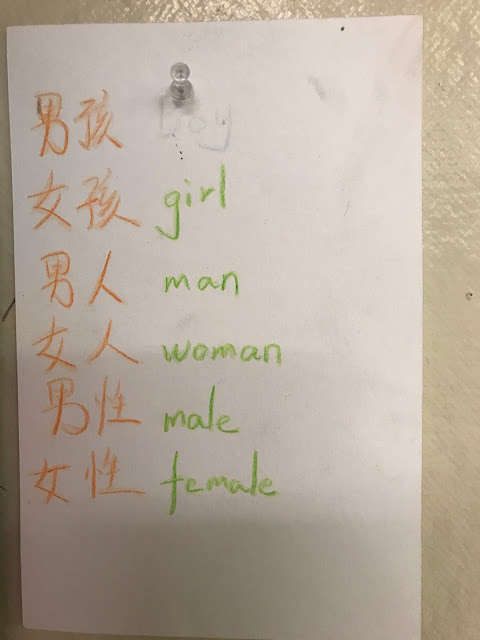 男孩 boy
女孩 girl
男人 man
女人 woman
男性 male
女性 female